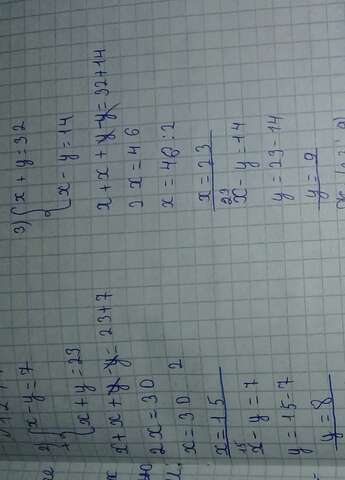 2) { x - y = 7
+ x + y = 23
x + x + y - y = 23 + 7
2x = 30
x = 30 2
x = 15
15
x - y = 7
y = 15 - 7
y = 8
3) { x + y = 32
x - y = 14
x + x + y - y = 32 + 14
2x = 46
x = 46 : 2
x = 23
23
x - y = 14
y = 23 - 14
y = 9